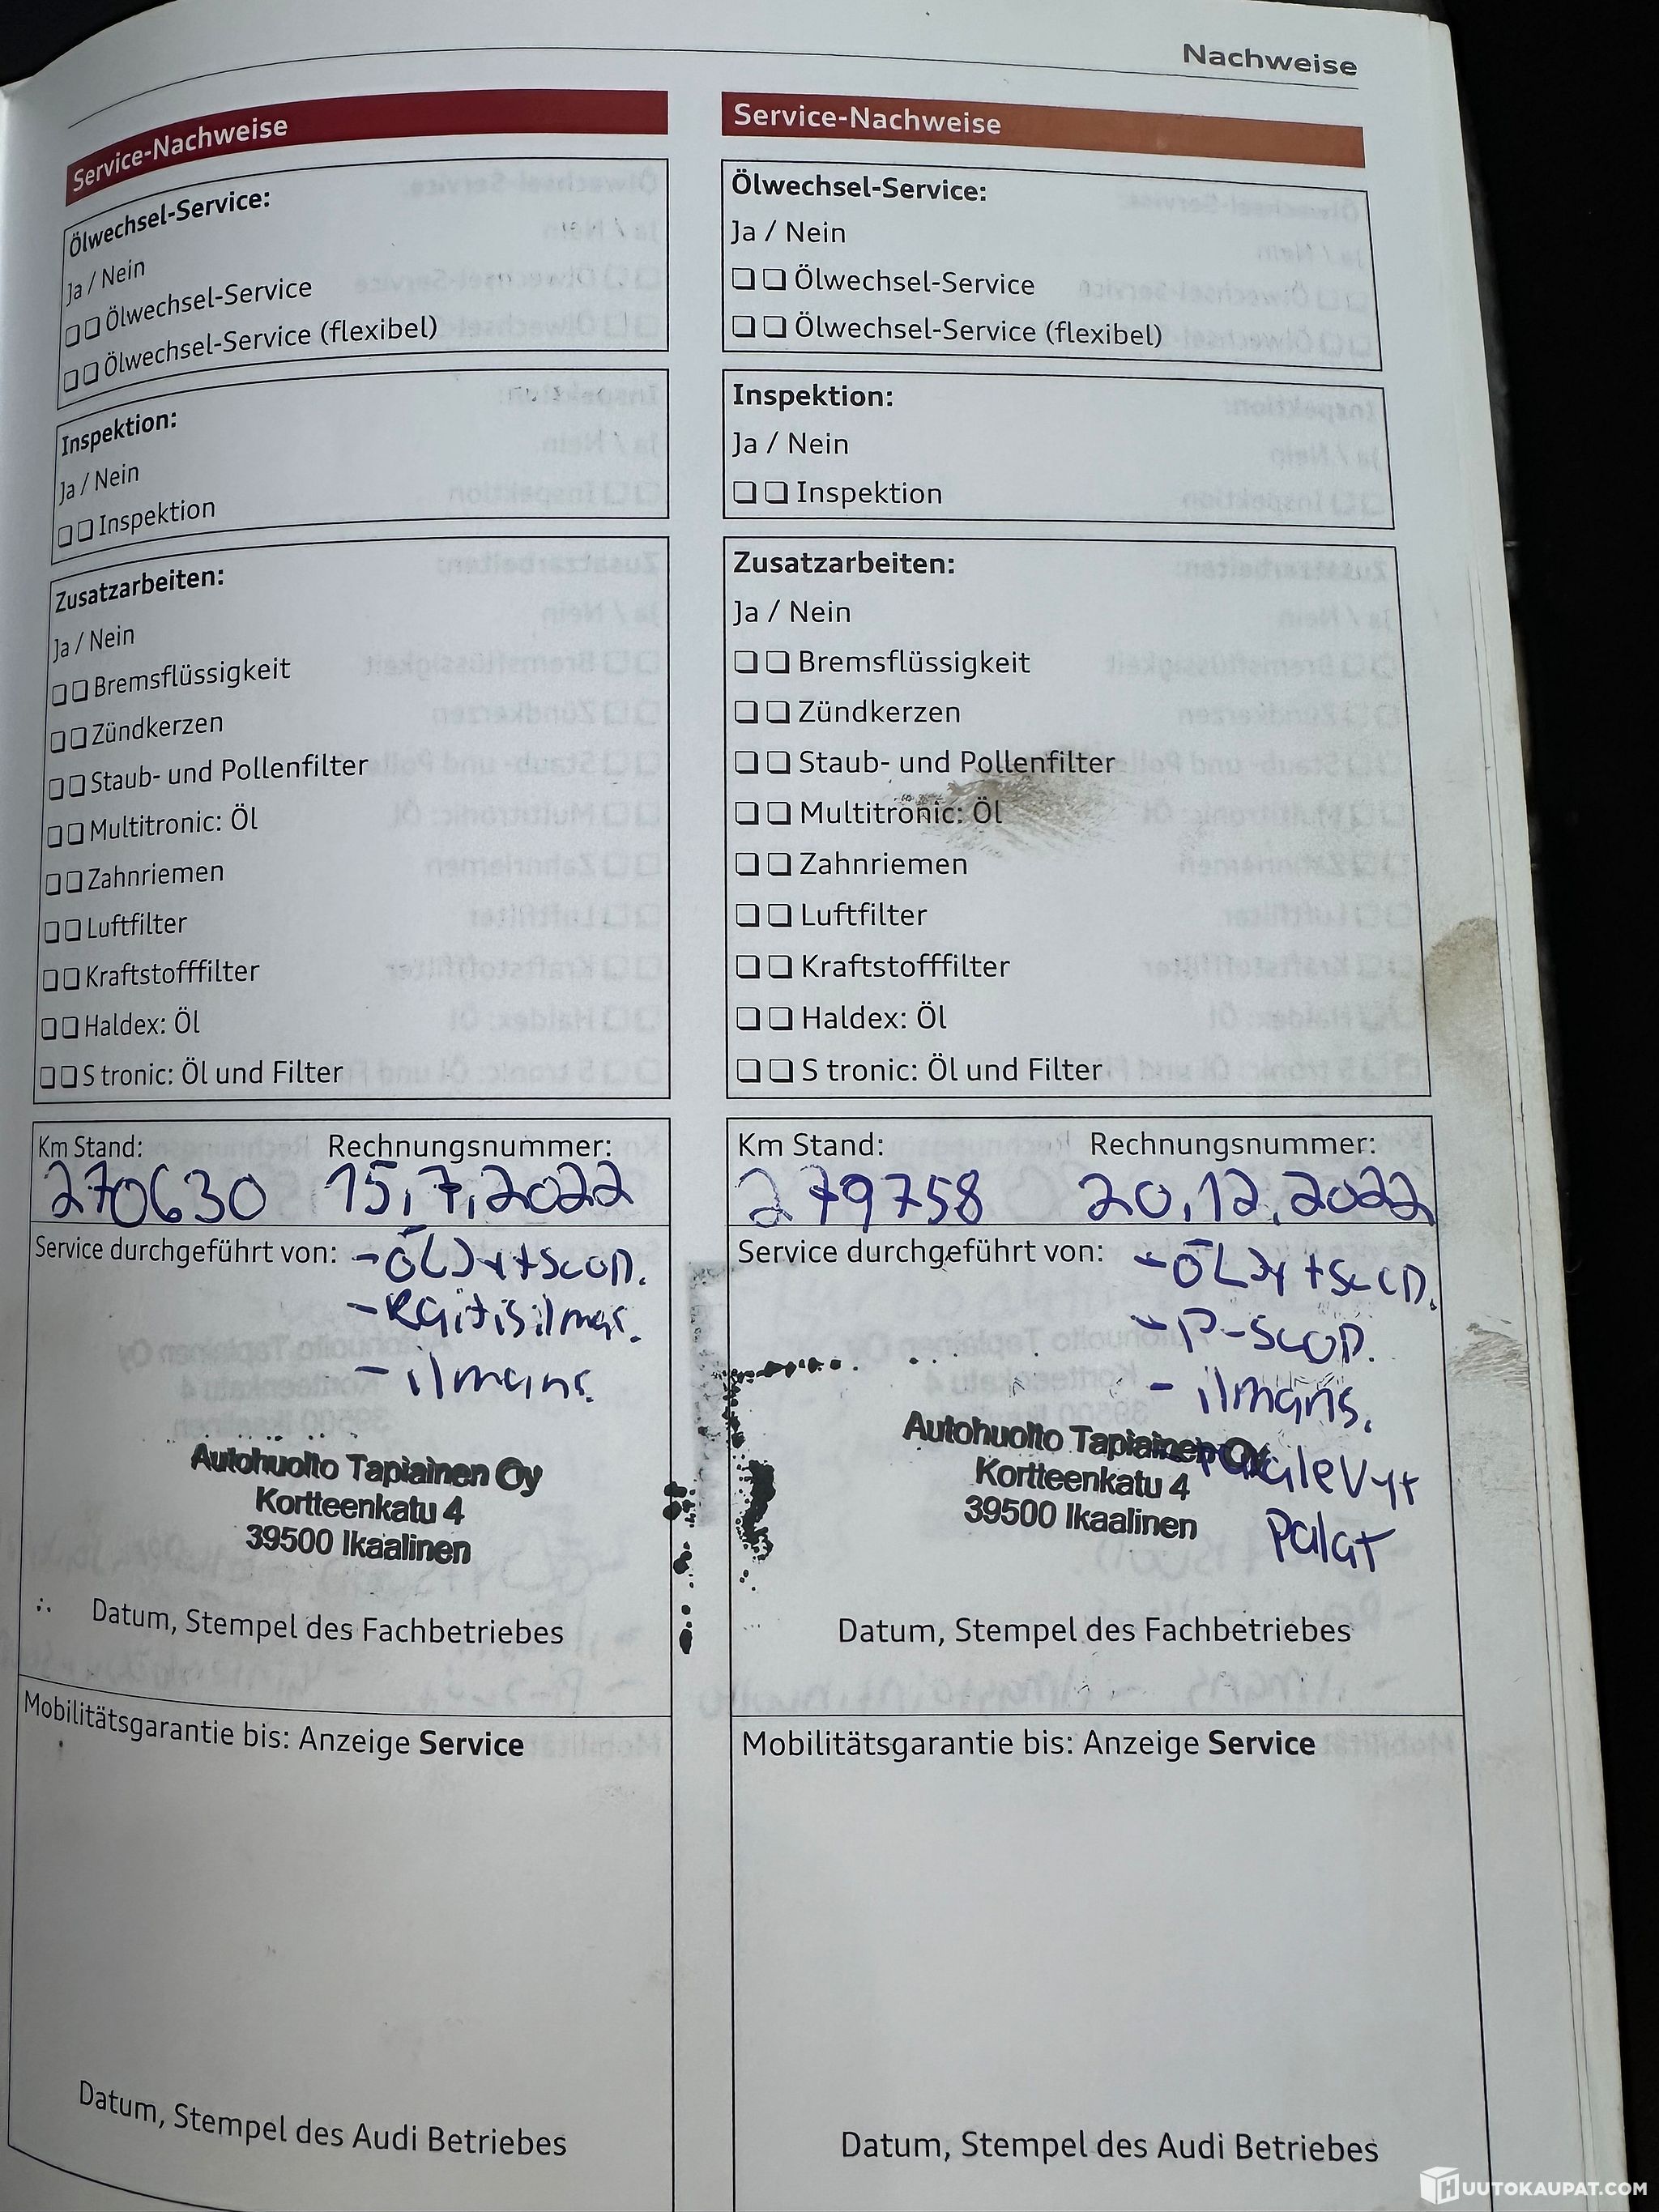 Nachweise
Service-Nachweise
Ölwechsel-Service:
Ja / Nein
Ölwechsel-Service
Ölwechsel-Service (flexibel)
Inspektion:
Ja / Nein
Inspektion
Zusatzarbeiten:
Ja / Nein
Bremsflüssigkeit
Zündkerzen
Staub- und Pollenfilter
Multitronic: Öl
Zahnriemen
Luftfilter
Kraftstofffilter
Haldex: Öl
S tronic: Öl und Filter
Km Stand: Rechnungsnummer:
270630 15,7,2022
Service durchgeführt von: - ÖLJyt+SUOD.
- Raitisilmas.
- ilmans.
Autohuolto Tapiainen Oy
Kortteenkatu 4
39500 Ikaalinen
Datum, Stempel des Fachbetriebes
Mobilitätsgarantie bis: Anzeige Service
Datum, Stempel des Audi Betriebes
Service-Nachweise
Ölwechsel-Service:
Ja / Nein
Ölwechsel-Service
Ölwechsel-Service (flexibel)
Inspektion:
Ja / Nein
Inspektion
Zusatzarbeiten:
Ja / Nein
Bremsflüssigkeit
Zündkerzen
Staub- und Pollenfilter
Multitronic: Öl
Zahnriemen
Luftfilter
Kraftstofffilter
Haldex: Öl
S tronic: Öl und Filter
Km Stand: Rechnungsnummer:
279758 20,12,2022
Service durchgeführt von:
- P-SUOD.
- ilmans.
Autohuolto Tapiainen Oy
Kortteenkatu 4
39500 Ikaalinen
Palat
Datum, Stempel des Fachbetriebes
Mobilitätsgarantie bis: Anzeige Service
Datum, Stempel des Audi Betriebes
HUUTOKAUPAT.COM